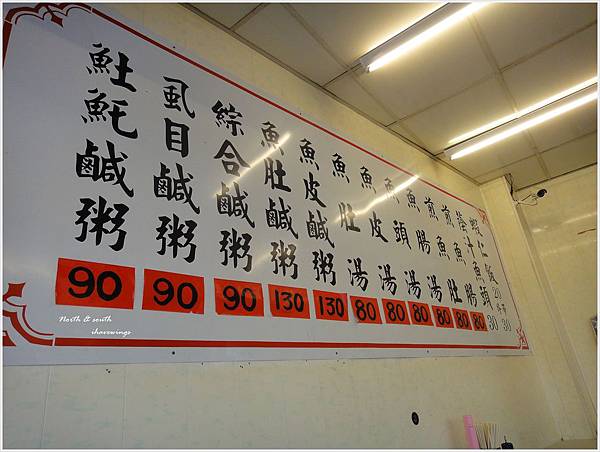 𩵚魠鹹粥 90
虱目鹹粥 90
綜合鹹粥 90
魚肚鹹粥 130
魚皮鹹粥 130
魚肚湯 80
魚皮湯 80
魚頭湯 80
魚腸湯 80
煎魚肚 80
煎魚腸 80
蔭汁魚頭 30
蝦仁飯 20 外帶 30
North & south